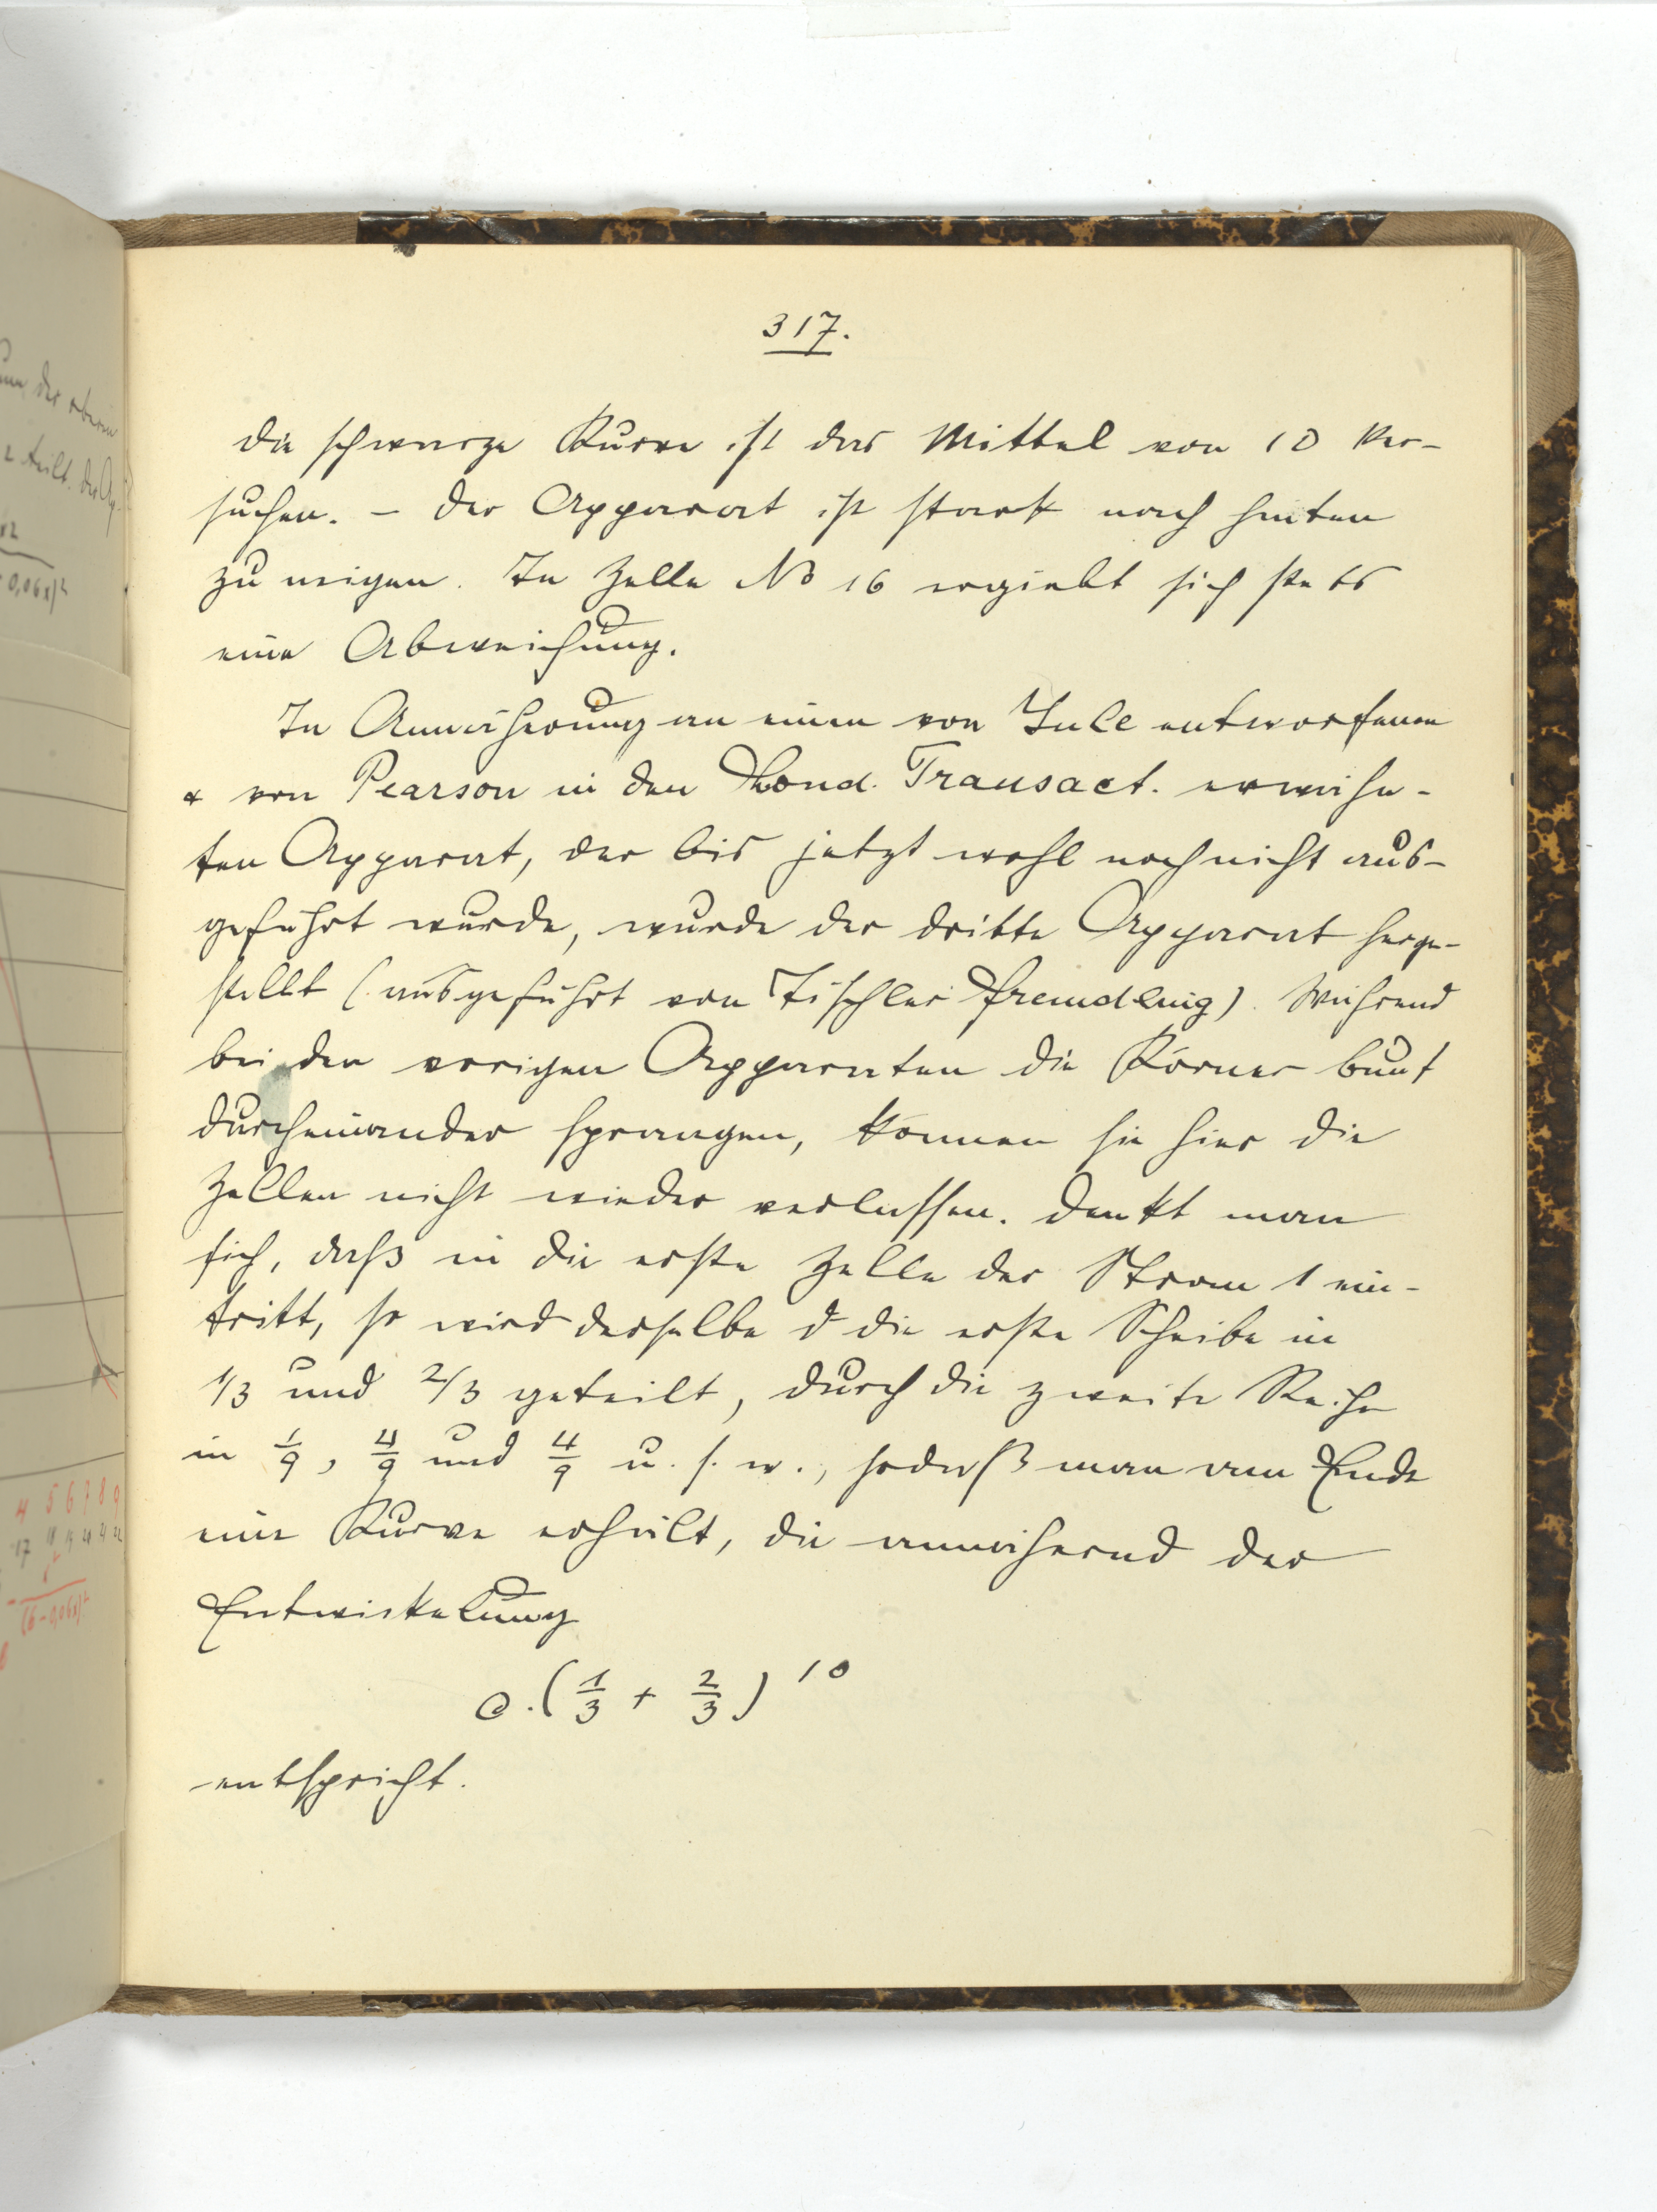 317.
Die schwarze Kurve ist das Mittel von 10 Ver-
suchen. – Der Apparat ist stark nach hinten
zu neigen. In Zelle No 16 ergiebt sich stets
eine Abweichung.
In Annäherung an einen von Yule entworfenen
& von Pearson in den Lond. Transact. erwähn-
ten Apparat, der bis jetzt wohl noch nicht aus-
geführt wurde, wurde der dritte Apparat herge-
stellt (ausgeführt von Tischler Fremdling). Während
bei den vorigen Apparaten die Körner bunt
durcheinander sprangen, können sie hier die
Zellen nicht wieder verlassen. Denkt man
sich, daß in die erste Zelle der Strom 1 ein-
tritt, so wird derselbe d die erste Scheibe in
1/3 und 2/3 geteilt, durch die zweite Reihe
in 1/9, 4/9 und 4/9 u. s. w., sodaß man am Ende
eine Kurve erhält, die annähernd der
Entwickelung
C.(1/3 + 2/3)^10
entspricht.